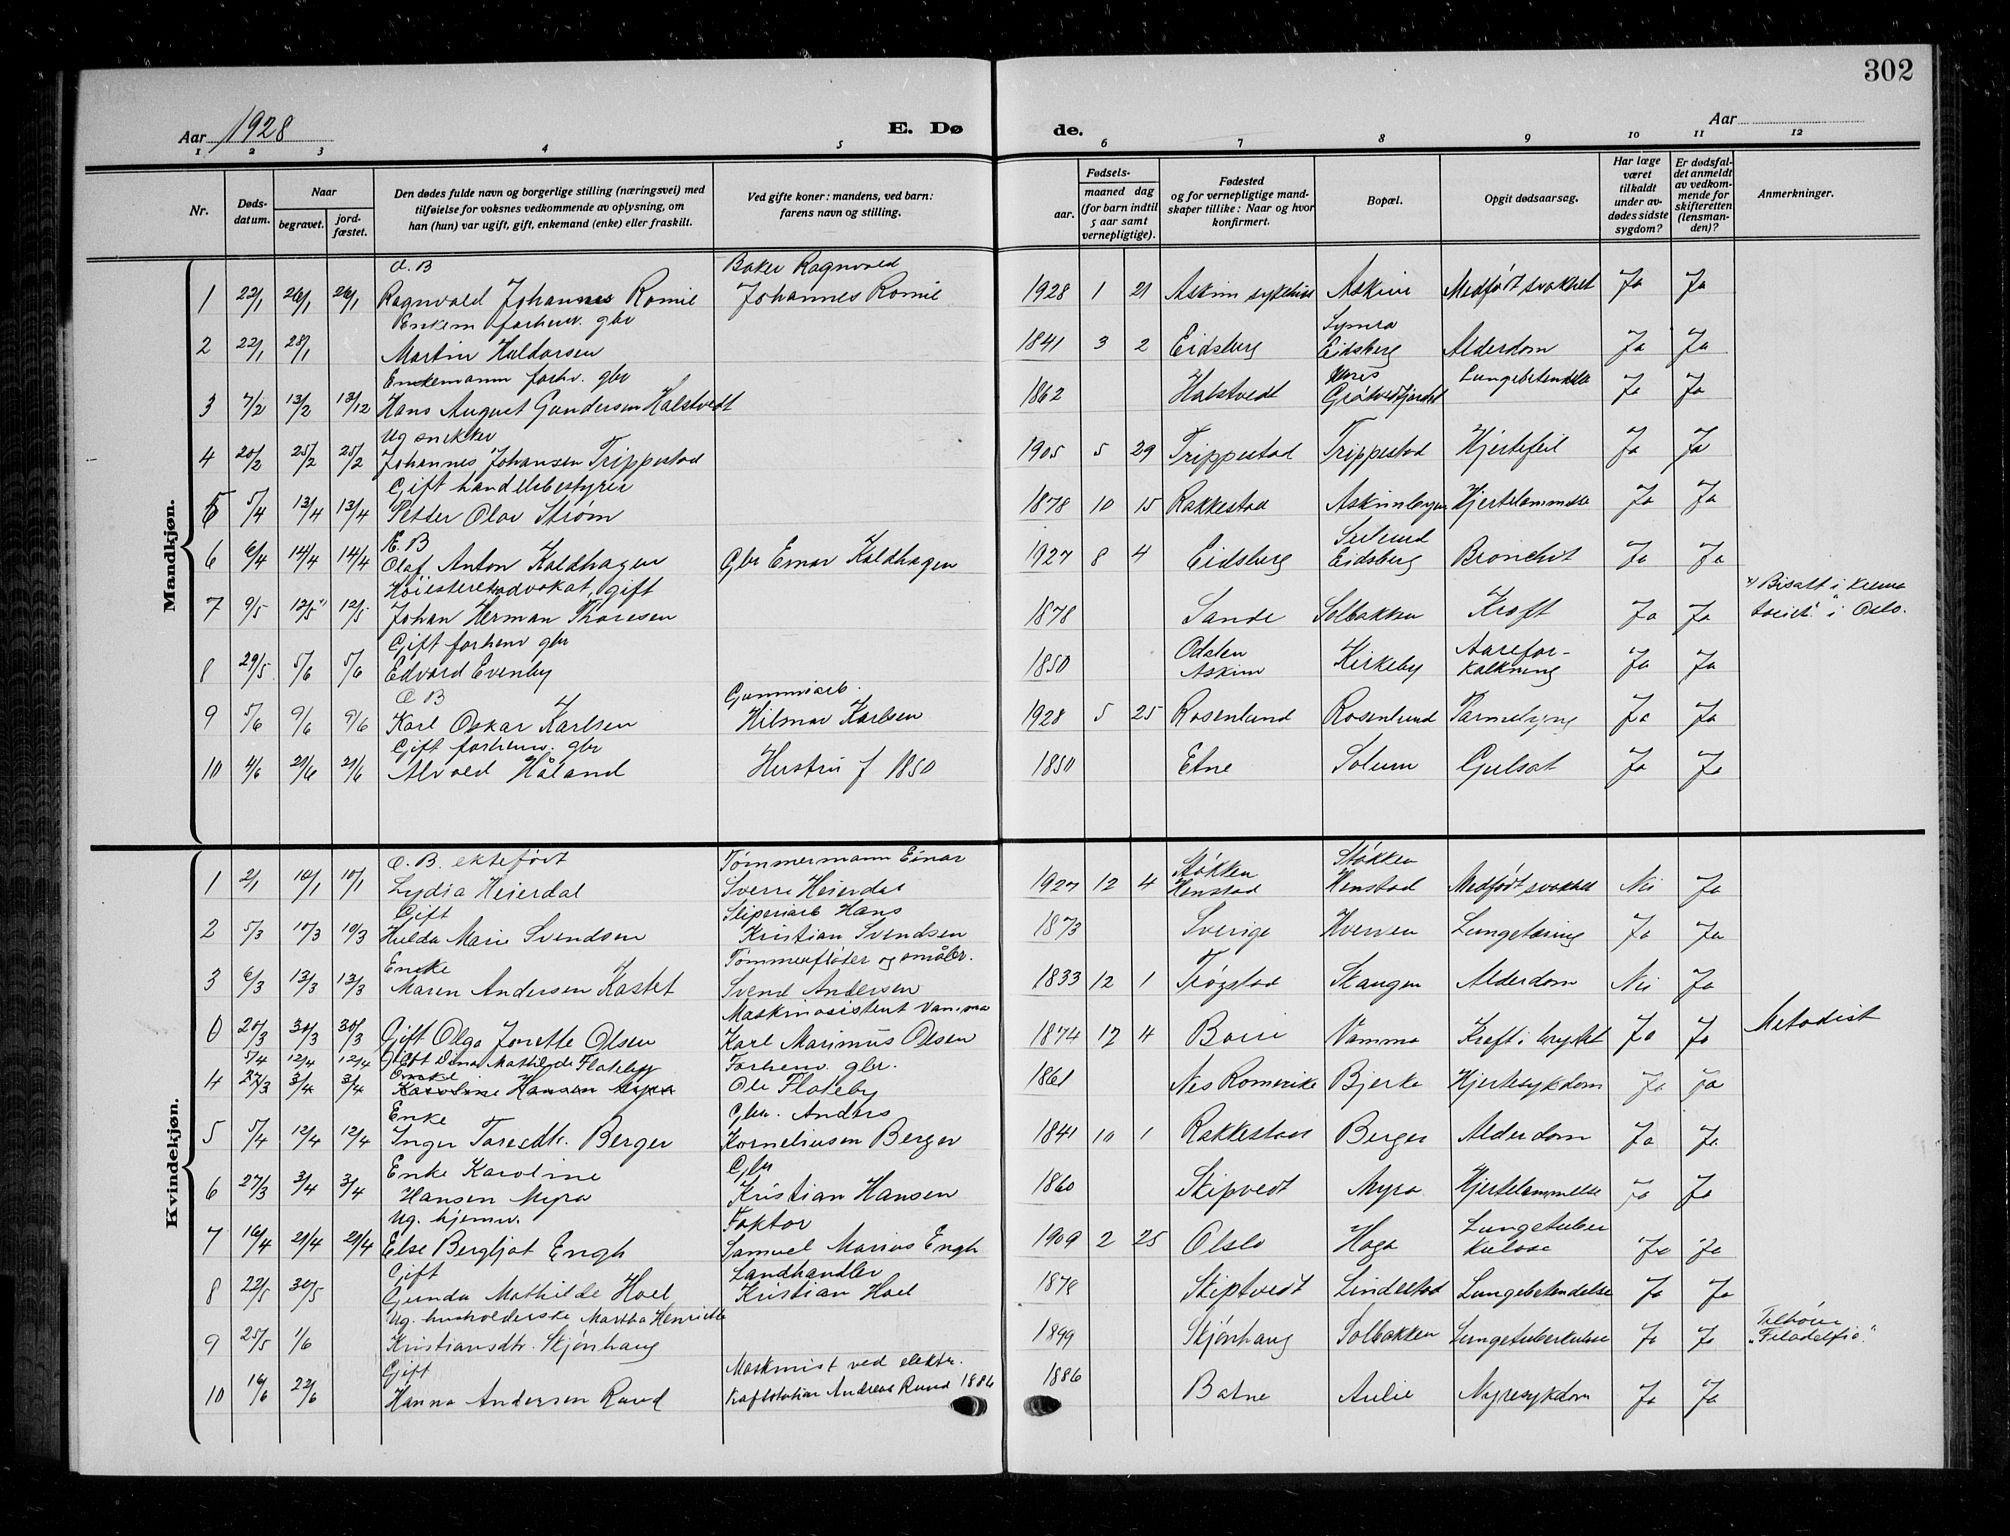 302
Aar 1928
E. Dø
de.
Aar
1 2 3 4 5 6 7 8 9 10 11 12
Nr.
Døds-
datum.
Naar
begravet.
jord-
fæstet.
Den dødes fulde navn og borgerlige stilling (næringsvei) med
tilføielse for voksnes vedkommende av oplysning, om
han (hun) var ugift, gift, enkemand (enke) eller fraskilt.
Ved gifte koner: mandens, ved barn:
farens navn og stilling.
Fødsels-
aar.
maaned dag
(for barn indtil
5 aar samt
vernepligtige).
Fødested
og for vernepligtige mand-
skaper tillike: Naar og hvor
konfirmert.
Bopæl.
Opgit dødsaarsag.
Har læge
været
tilkaldt
under av-
dødes sidste
sygdom?
Er dødsfal-
det anmeldt
av vedkom-
mende for
skifteretten
(lensman-
den)?
Anmerkninger.
Mandkjøn.
Æ. B Baker Ragnvald
1 22/1 26/1 26/1 Ragnvald Johannes Romil Johannes Romil 1928 1 21 Askim sykehus Askim Medfødt svakhet Ja Ja
Enkem forhenv. gbr
2 22/1 28/1 Martin Haldorsen 1841 3 2 Eidsberg Eidsberg Alderdom Ja Ja
Enkemann forhv. gbr
3 7/2 13/2 13/12 Hans August Gundersen Halstvedt 1862 Halstvedt Grøtvedtjordet Lungebetendelse Ja Ja
Ug snekker
4 20/2 25/2 25/2 Johannes Johansen Trippestad 1905 5 29 Trippestad Trippestad Hjertefeil Ja Ja
Gift handelsbestyrer
5 5/4 13/4 13/4 Petter Olav Strøm 1878 10 15 Rakkestad Askimbyen Hjertelammelse Ja Ja
Æ. B
6 6/4 14/4 14/4 Olaf Anton Kaldhagen Gbr Einar Kaldhagen 1927 8 4 Eidsberg Eidsberg Bronchit Ja Ja
Høiesteretsadvokat, gift
7 9/5 12/5 12/5 Johan Herman Thoresen 1878 Sande Solbakken Kræft Ja Ja Bisatt i i Oslo.
Gift forhenv gbr
8 29/5 5/6 5/6 Edvard Evenby 1850 Askim Kirkeby Aarefor-
kalkning Ja Ja
Æ B Gummiarb.
9 5/6 9/6 9/6 Karl Oskar Karlsen Hilmar Karlsen 1928 5 25 Rosenlund Rosenlund Tarmslyng Ja Ja
Gift forhenv. gbr
10 4/6 21/6 21/6 Alvald Håland Hustru f 1850 1850 Etne Solum Gulsot Ja Ja
Kvindekjøn.
Æ. B. ektefødt Tømmermann Einar
1 2/1 10/1 10/1 Lydia Heierdal Sverre Heierdal 1927 12 4 Støkken
Henstad Støkken
Henstad Medfødt svakhet Nei Ja
Gift Sliperiarb Hans
2 5/3 10/3 10/3 Hulda Marie Svendsen Kristian Svendsen 1873 Sverige Hverven Lungetæring Ja Ja
Enke Tømmerfløter og småbr.
3 6/3 13/3 13/3 Maren Andersen Kastet Svend Andersen 1833 12 1 Trøgstad Skaugen Alderdom Nei Ja
Maskinassistent Vamma
0 25/3 30/3 30/3 Gift Olga Josette Olsen Karl Marimus Olsen 1874 12 4 Vamma Kræft i brystet Ja Ja Metodist
5/4 12/4 12/4 Gift Dina Mathilde Flateby Forhenv. gbr.
4 27/3 3/4 3/4 Enke Karoline Hansen Myra Ole Flateby 1861 Nes Romerike Bjerke Hjertesykdom Ja Ja
Enke Gbr. Anders
5 5/4 12/4 12/4 Inger Toresdtr. Berger Korneliusen Berger 1841 10 1 Rakkestad Berger Alderdom Ja Ja
Enke Karoline Gbr
6 27/3 3/4 3/4 Hansen Myra Kristian Hansen 1860 Skipvedt Myra Hjertelammelse Ja Ja
Ug. hjemv. Faktor
7 16/4 21/4 21/4 Else Bergljot Engh Samuel Marius Engh 1909 2 25 Olslo Haga Lungetuber
kulose Ja Ja
Gift Landhandler
8 22/5 30/5 Gunda Mathilde Hoel Kristian Hoel 1878 Skiptvedt Lindestad Lungebetendelse Ja Ja
Ug. husholderske Martha Henriette
9 25/5 1/6 Kristiansdtr. Skjønhaug 1899 Skjønhaug Solbakken Lungetuberkulose Ja Ja Tilhører
"Filadelfia"
Gift Maskinist ved elektr.
10 16/6 22/6 Hanna Andersen Rund Kraftstation Andreas Rund 1886 1886 Aulie Nyresykdom Ja Ja